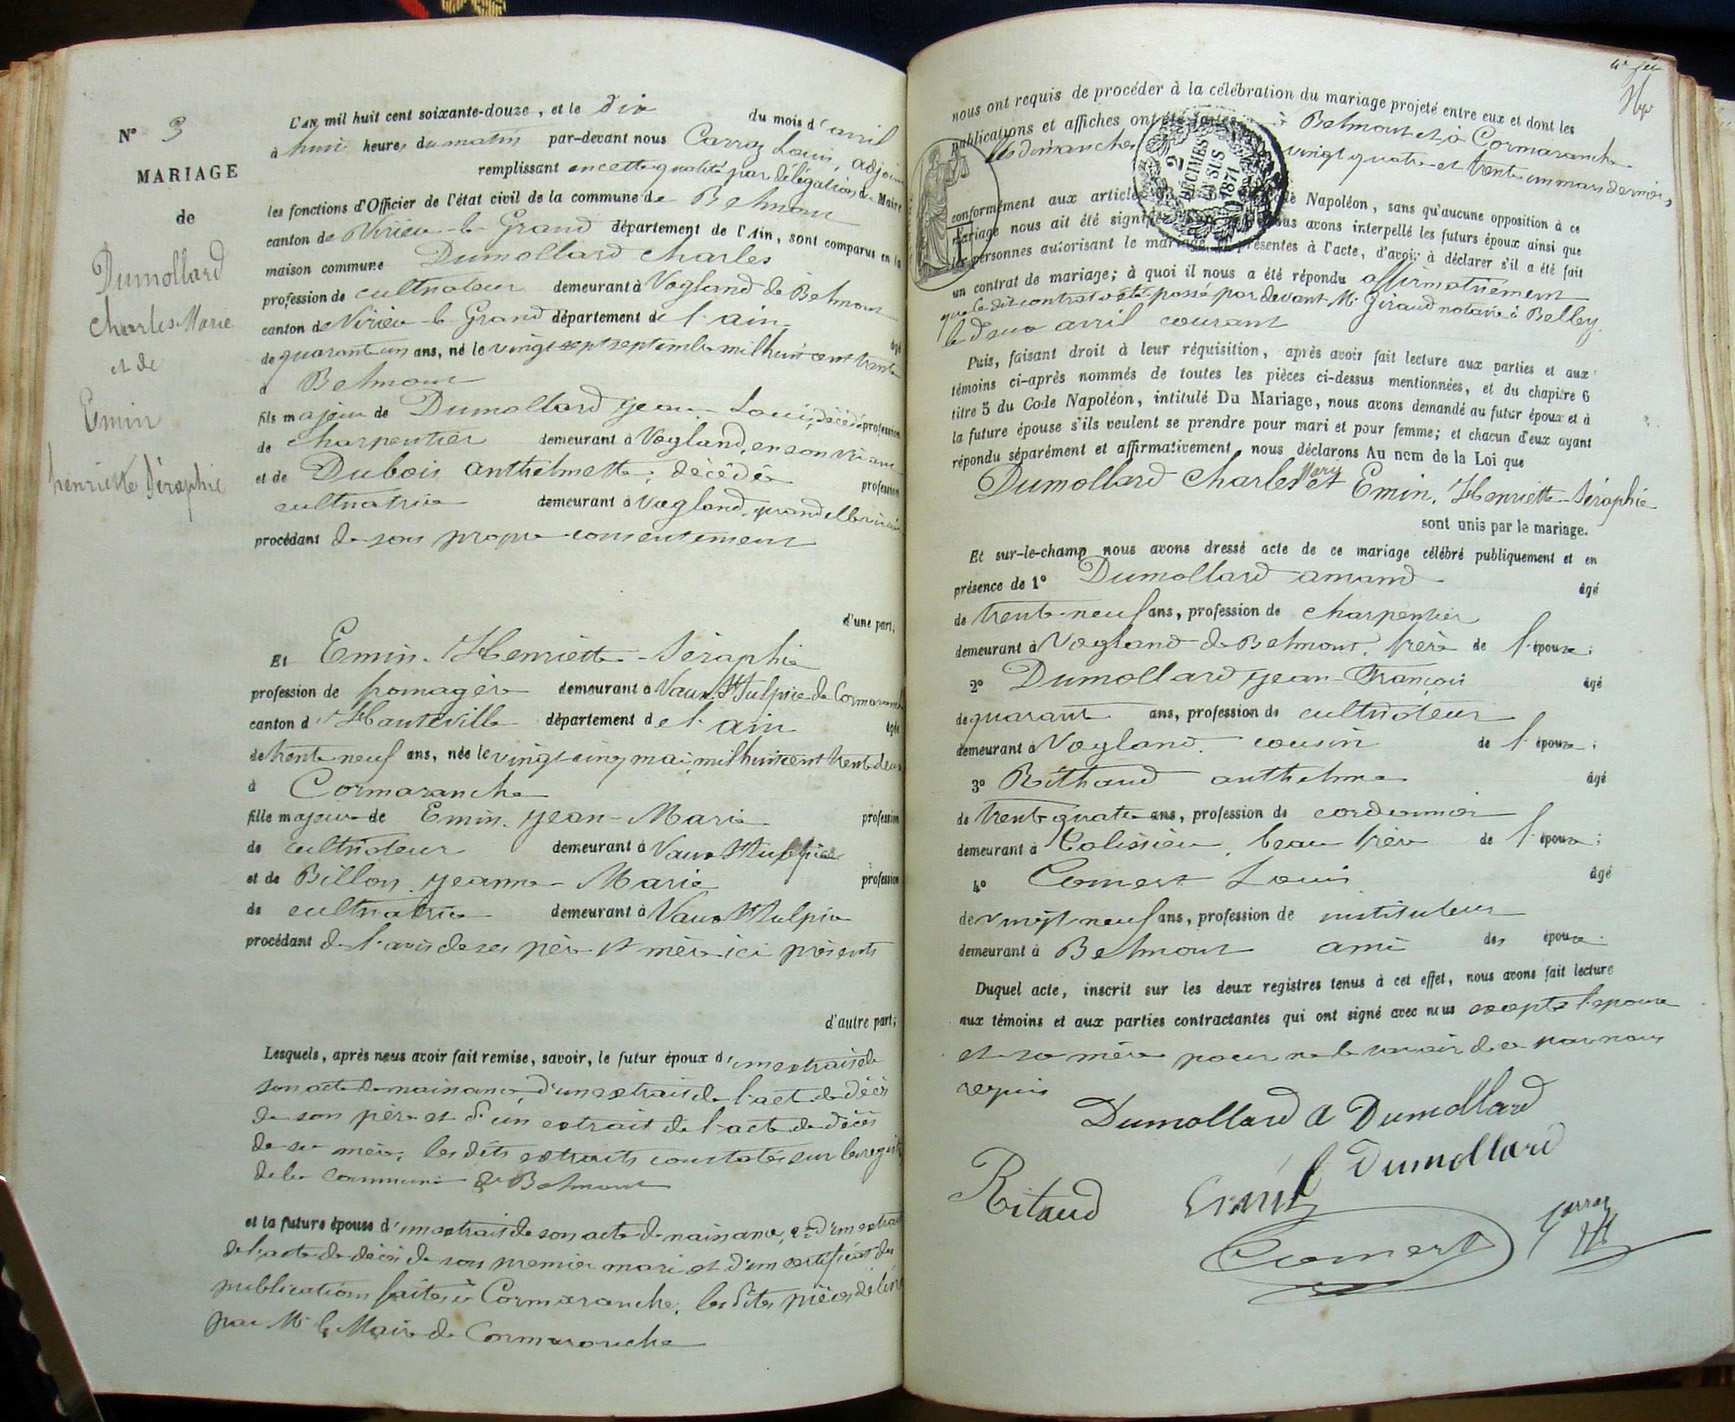 N° 3
MARIAGE
de
Dumollard
Charles-Marie
et de
Emin
henriette Séraphie
L'an mil huit cent soixante-douze, et le dix du mois d'avril
à huit heures du matin par-devant nous Carraz Louis, adjoint
remplissant en cette qualité par délégation du Maire
les fonctions d'Officier de l'état civil de la commune de Belmont
canton de Virieu-le-Grand département de l'Ain, sont comparus en la
maison commune Dumollard Charles
profession de cultivateur demeurant à Vogland de Belmont
canton de Virieu-le-Grand département de l'ain âgé
de quarante un ans, né le vingt sept septembre mil huit cent trente
à Belmont
fils majeur de Dumollard Jean-Louis, décédé profession
de charpentier demeurant à Vogland, en son vivant
et de Dubois anthelmette, décédée profession
cultivatrice demeurant à Vogland, quand elle vivait
procédant de son propre consentement
d'une part,
Et Emin. Henriette-Séraphie
profession de fromagère demeurant à Vaux St Sulpice de Cormaranche
canton d'Hauteville département de l'ain âgée
de trente neuf ans, née le vingt cinq mai mil huit cent trente deux
à Cormaranche
fille majeure de Emin. Jean-Marie profession
de cultivateur demeurant à Vaux St Sulpice
et de Billon Jeanne-Marie profession
de cultivatrice demeurant à Vaux St Sulpice
procédant de l'avis de ses père et mère ici présents
d'autre part;
Lesquels, après nous avoir fait remise, savoir, le futur époux d'un extrait de
son acte de naissance, d'un extrait de l'acte de décès
de son père et d'un extrait de l'acte de décès
de sa mère, les dits extraits constatés sur les registres
de la commune de Belmont
et la future épouse d'un extrait de son acte de naissance, d'un extrait
de l'acte de décès de son premier mari et d'un certificat de
publications faites à Cormaranche, les dites pièces délivrées
par Mr le Maire de Cormaranche
nous ont requis de procéder à la célébration du mariage projeté entre eux et dont les
publications et affiches ont été faites à Belmont et à Cormaranche
les dimanches vingt quatre et trente un mars dernier,
2 DÉCIMES EN SUS 1871
conformément aux articles Code Napoléon, sans qu'aucune opposition à ce
mariage nous ait été signifiée, nous avons interpellé les futurs époux ainsi que
les personnes autorisant le mariage, présentes à l'acte, d'avoir à déclarer s'il a été fait
un contrat de mariage; à quoi il nous a été répondu affirmativement
que le dit contrat a été passé par devant Me Giraud notaire à Belley,
le deux avril courant
Puis, faisant droit à leur réquisition, après avoir fait lecture aux parties et aux
témoins ci-après nommés de toutes les pièces ci-dessus mentionnées, et du chapitre 6
titre 5 du Code Napoléon, intitulé Du Mariage, nous avons demandé au futur époux et à
la future épouse s'ils veulent se prendre pour mari et pour femme; et chacun d'eux ayant
répondu séparément et affirmativement, nous déclarons Au nom de la Loi que
Dumollard Charles Mary et Emin. Henriette-Séraphie
sont unis par le mariage.
Et sur-le-champ nous avons dressé acte de ce mariage célébré publiquement et en
présence de 1° Dumollard amand âgé
de trente-neuf ans, profession de charpentier
demeurant à Vogland de Belmont, frère de l'époux;
2° Dumollard Jean-François âgé
de quarante ans, profession de cultivateur
demeurant à Vogland. cousin de l'époux;
3° Rithaud anthelme âgé
de trente-quatre ans, profession de cordonnier
demeurant à Colissieu, beau frère de l'époux;
4° Comert Louis âgé
de vingt-neuf ans, profession de instituteur
demeurant à Belmont ami des époux.
Duquel acte, inscrit sur les deux registres tenus à cet effet, nous avons fait lecture
aux témoins et aux parties contractantes qui ont signé avec nous excepté l'épouse
et sa mère pour ne le savoir de ce par nous
requis
Dumollard A Dumollard
Ritaud Emin f Dumollard
Comert Carraz